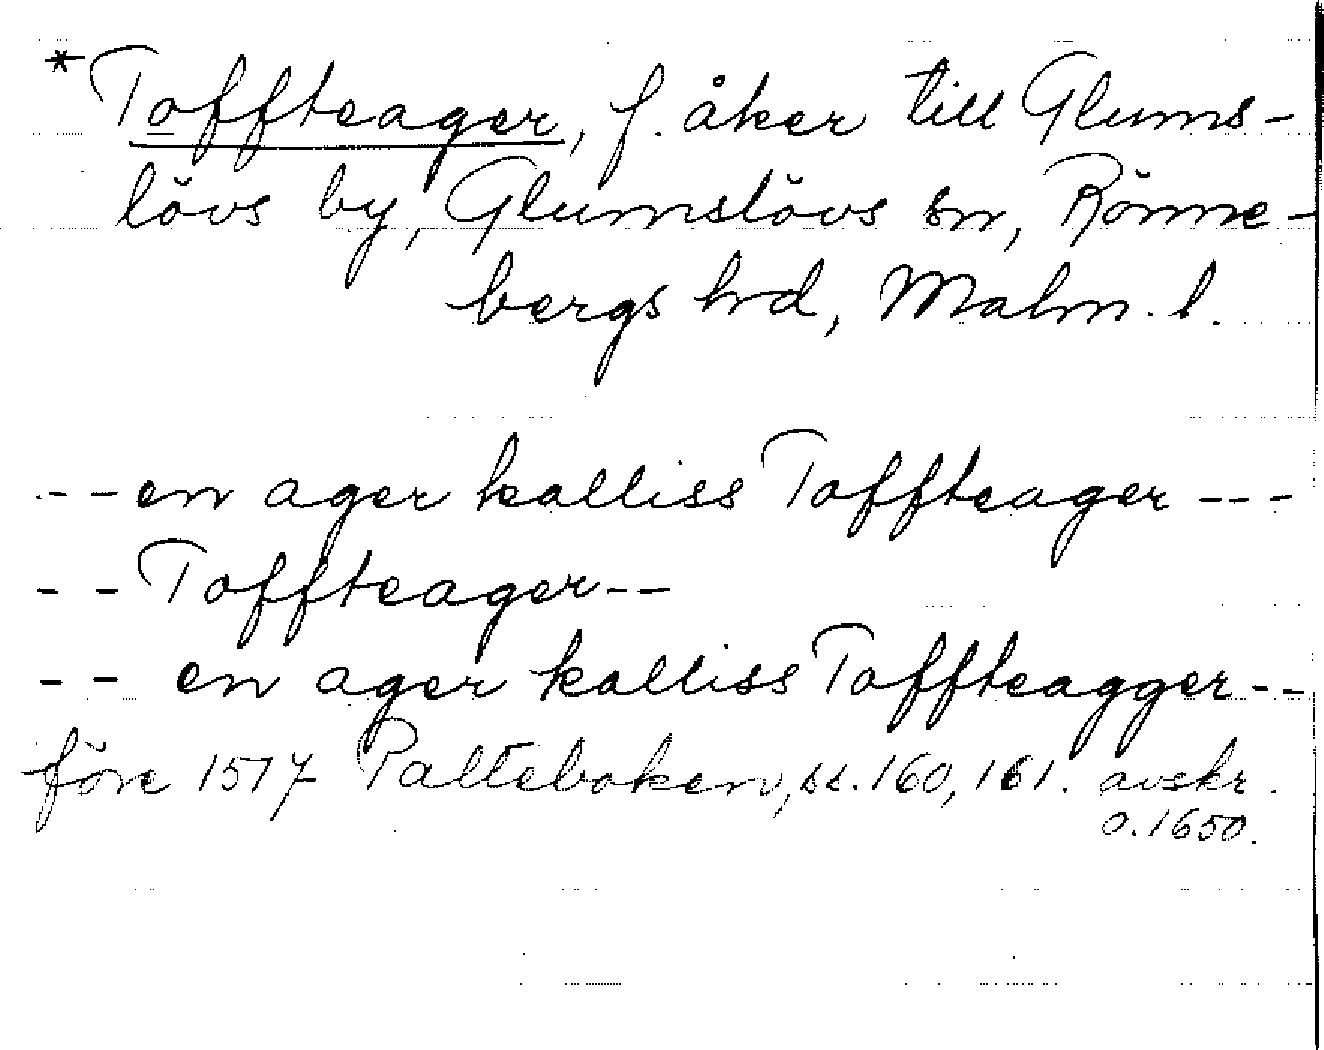 *Toffteager, f. åker till Glums-
lövs by, Glumslövs sn, Rönne-
bergs hd, Malm. l.
--en ager kalliss Toffteager ---
-- Toffteager--
-- en ager kalliss Toffteagger--
före 1517 Palteboken, sd. 160, 161. avskr.
o. 1650.